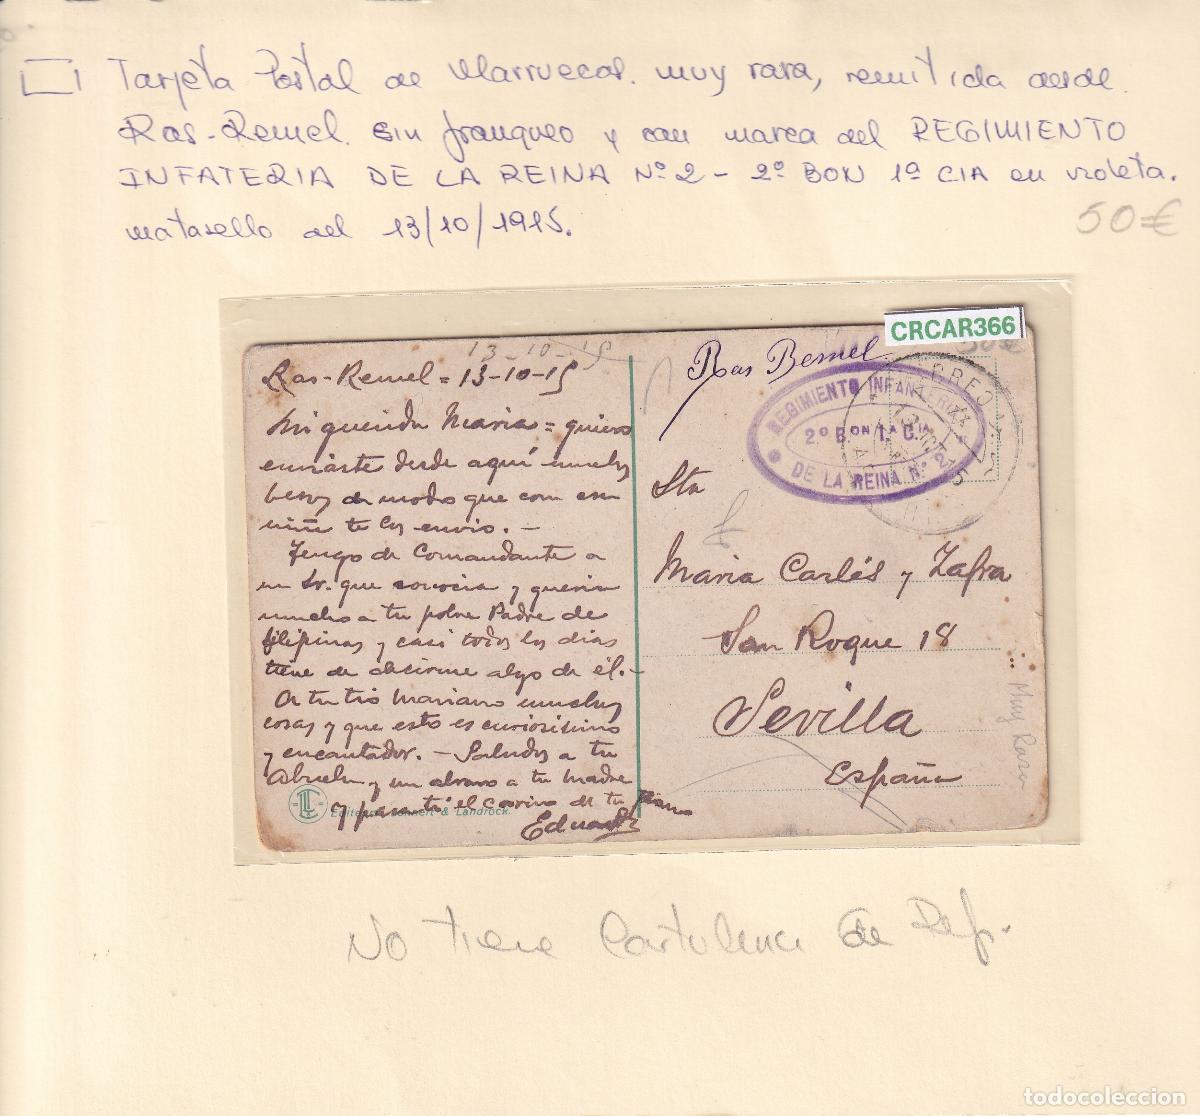 1 Tarjeta Postal de Marruecos. muy rara, remitida desde
Ras-Remel. sin franqueo y con marca del REGIMIENTO
INFATERIA DE LA REINA Nº 2 - 2º BON 1ª CIA en violeta.
matasello del 13/10/1915.
50€
CRCAR366
50€
13-10-15
Ras-Remel = 13-10-15
Mi querida Maria = quiero
enviarte desde aquí muchos
besos de modo que con ese
te los envio. -
Tengo de Comandante a
un Sr. que conocia y queria
mucho a tu pobre Padre de
filipinas y casi todos los dias
tiene de decirme algo de él. -
A tu tio Mariano muchas
cosas y que esto es curiosisimo
y encantador. - Saludos a tu
Abuela y un abrazo a tu Madre
y para ti el cariño de tu
Eduardo
Editeurs Lehnert & Landrock.
Ras Remel
REGIMIENTO INFANTERIA
2º Bon 1ª Cia
DE LA REINA Nº 2
CORREO
13 OCT 15
Sta
Maria Carlés y Zafra
San Roque 18
Sevilla
España
Muy Raro
No tiene Cartulina de Ref.
todocoleccion